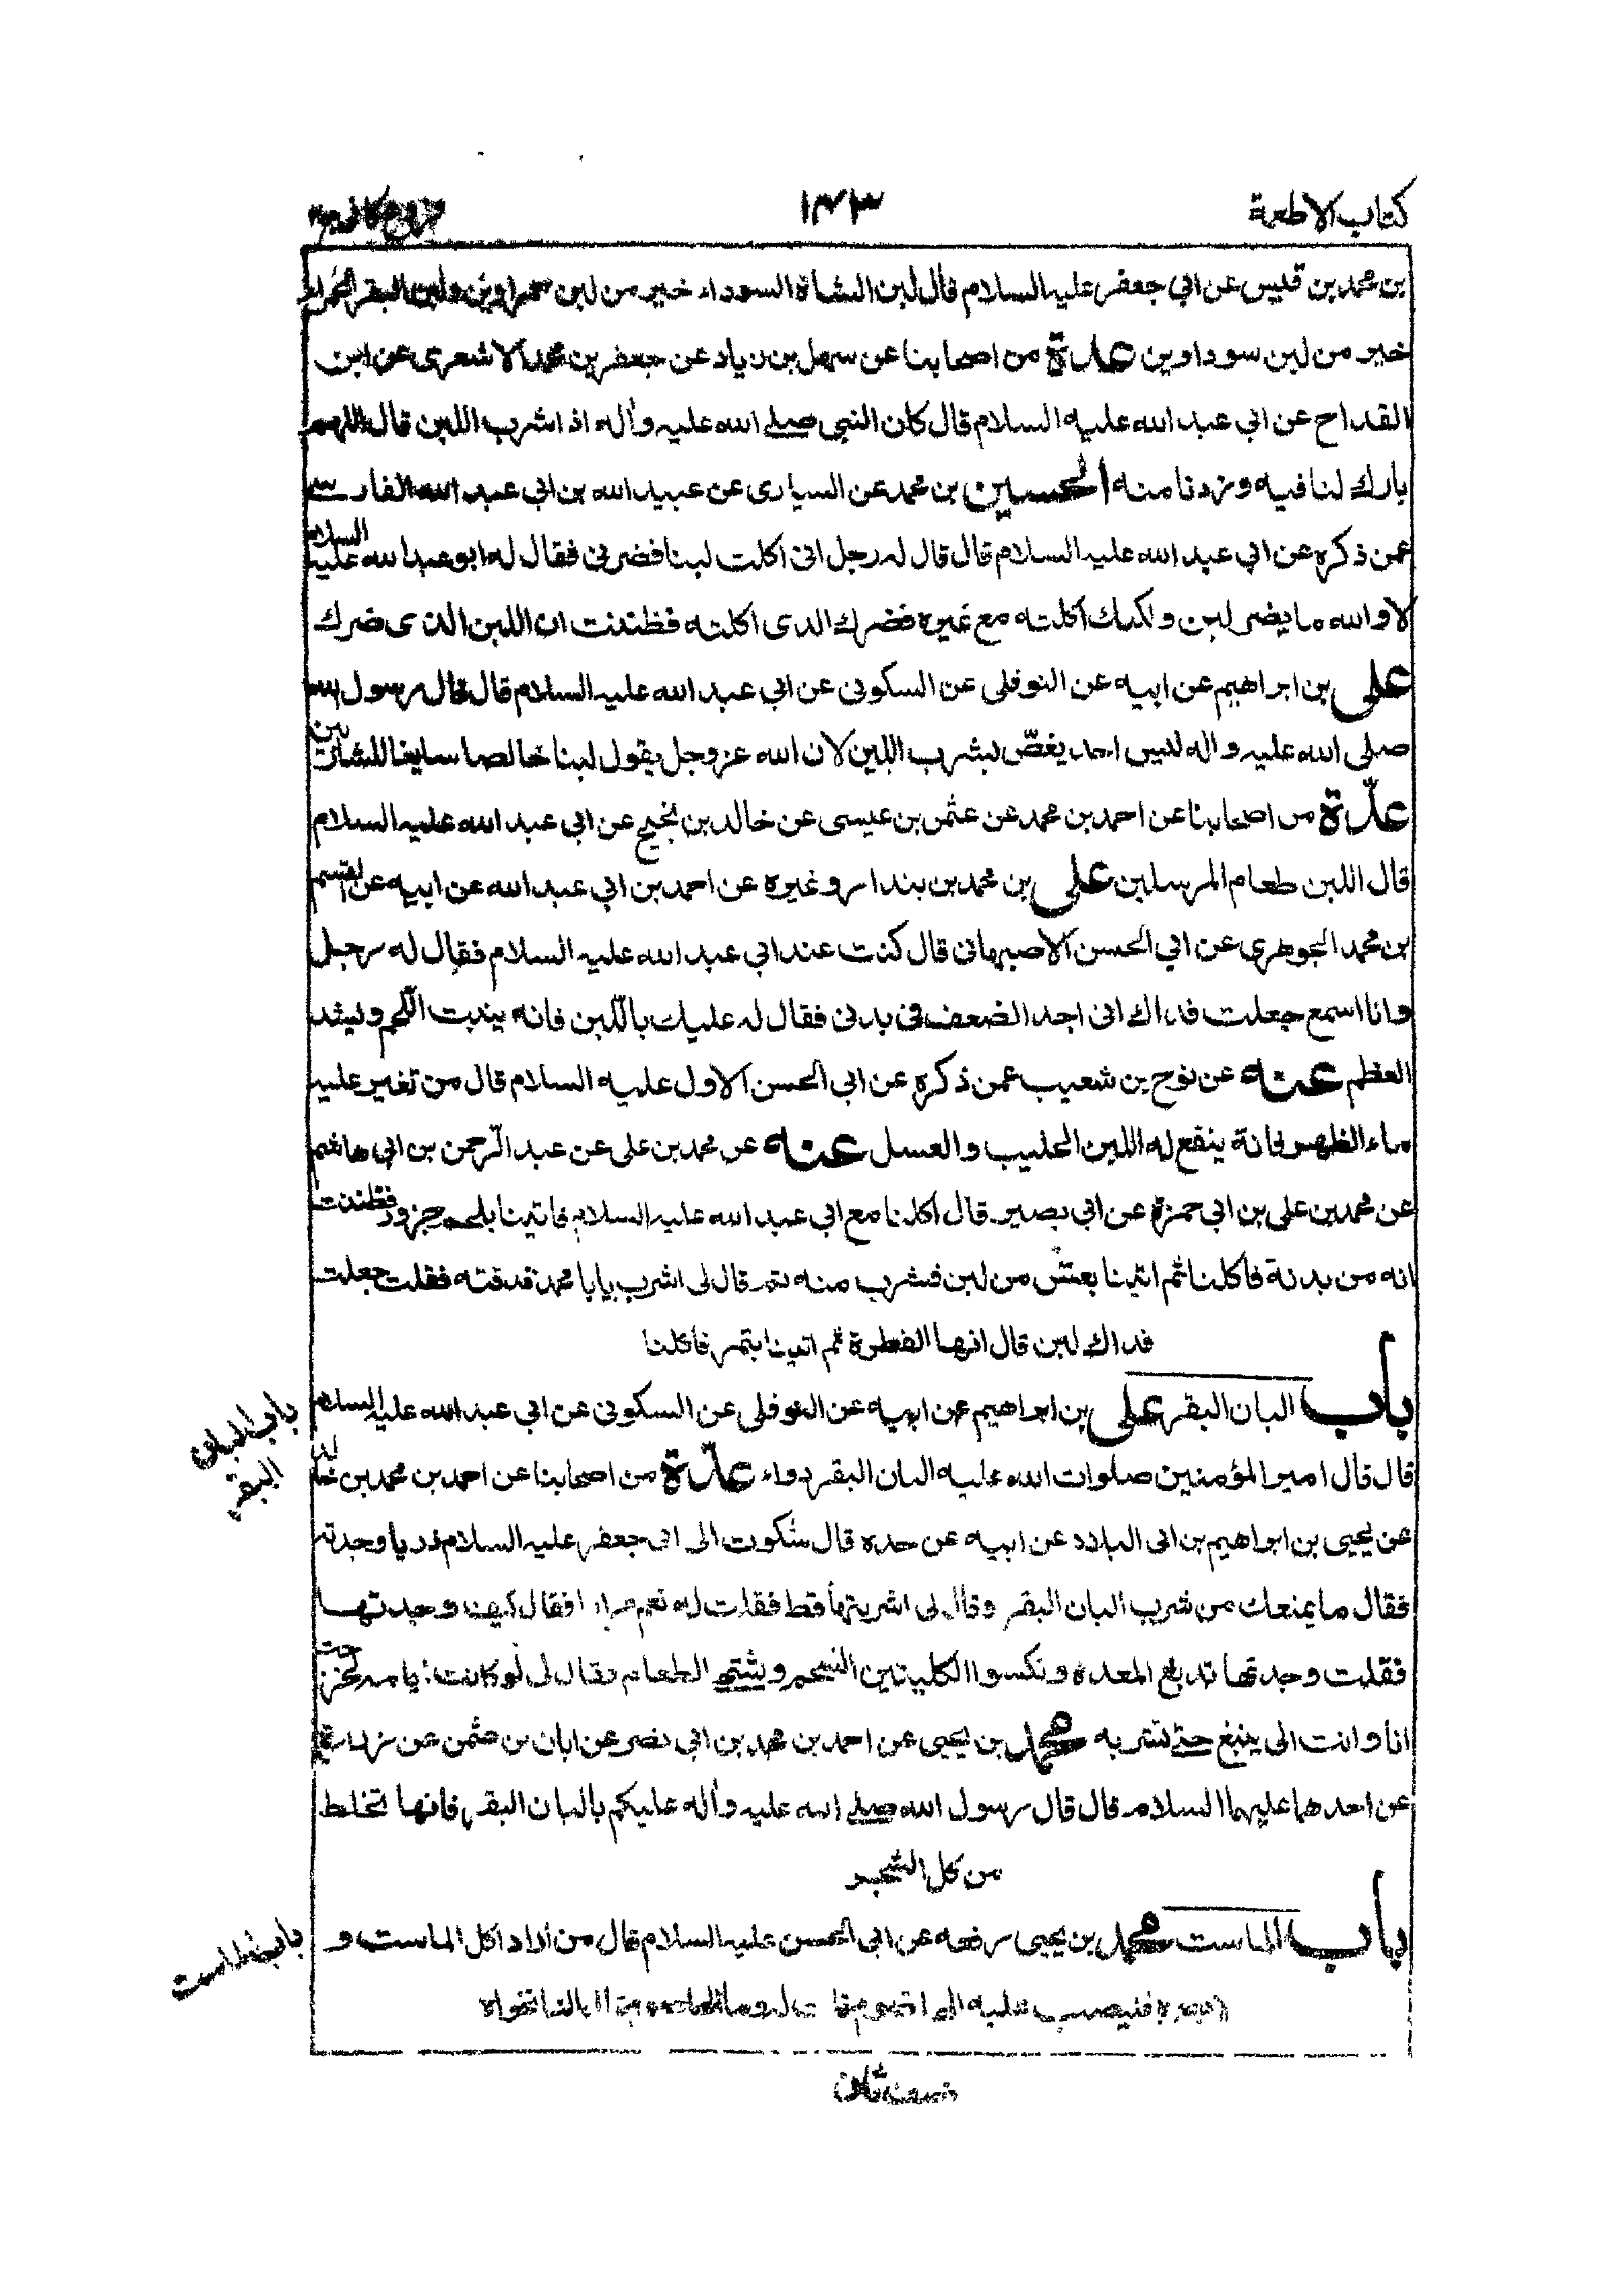 كتاب الاطعمة ١٧٣ فروع كافي
بن محمد بن قيس عن ابي جعفر عليه السلام قال لبن الشاة السوداء خير من لبن حمراوين ولبن البقر الحمراء
خير من لبن سوداوين عدة من اصحابنا عن سهل بن زياد عن جعفر بن محمد الاشعرى عن ابن
القداح عن ابي عبد الله عليه السلام قال كان النبي صلى الله عليه وآله اذا شرب اللبن قال اللهم
بارك لنا فيه وزدنا منه الحسين بن محمد عن السيارى عن عبيد الله بن ابي عبد الله الفارسي
عمن ذكره عن ابي عبد الله عليه السلام قال قال له رجل انى اكلت لبنا فضرني فقال له ابو عبد الله عليه السلام
لا والله ما يضر لبن ولكنك اكلته مع غيره فضرك الذى اكلته فظننت ان اللبن الذى ضرك
على بن ابراهيم عن ابيه عن النوفلى عن السكونى عن ابي عبد الله عليه السلام قال قال رسول الله
صلى الله عليه واله ليس احد يغصّ بشرب اللبن لان الله عز وجل يقول لبنا خالصا سايغا للشاربين
عدّة من اصحابنا عن احمد بن محمد عن عثمن بن عيسى عن خالد بن نجيح عن ابي عبد الله عليه السلام
قال اللبن طعام المرسلين على بن محمد بن بندار وغيره عن احمد بن ابي عبد الله عن ابيه عن القسم
بن محمد الجوهرى عن ابي الحسن الاصبهانى قال كنت عند ابي عبد الله عليه السلام فقال له رجل
وانا اسمع جعلت فداك انى اجد الضعف في بدنى فقال له عليك باللّبن فانه ينبت اللّحم ويشد
العظم عنه عن نوح بن شعيب عمن ذكره عن ابى الحسن الاول عليه السلام قال من تغير عليه
ماء الظهر فانة ينفع له اللبن الحليب والعسل عنه عن محمد بن على عن عبد الرّحمن بن ابي هاشم
عن محمد بن على بن ابي حمزة عن ابي بصير قال اكلنا مع ابي عبد الله عليه السلام فاتينا بلحم جزور فظننت
انه من بدنة فاكلنا ثم اتينا بعسّ من لبن فشرب منه ثم قال لى اشرب يا با محمد فذقته فقلت جعلت
فداك لبن قال انها الفطرة ثم اتينا بتمر فاكلنا
باب البان البقر على بن ابراهيم عن ابيه عن النوفلى عن السكونى عن ابي عبد الله عليه السلام
باب البان البقر
قال قال امير المؤمنين صلوات الله عليه البان البقر دواء عدّة من اصحابنا عن احمد بن محمد بن خالد
عن يحيى بن ابراهيم بن ابى البلاد عن ابيه عن جده قال شكوت الى ابى جعفر عليه السلام ذربا وجدته
فقال ما يمنعك من شرب البان البقر وقال لى اشربتها قط فقلت له نعم مرارا فقال كيف وجدتها
فقلت وجدتها تدبغ المعدة وتكسوا الكليتين الشحم ويشتهى الطعام فقال لى لو كانت ايامه لخرجت
انا وانت الى ينبع حتى نشربه محمد بن يحيى عن احمد بن محمد بن ابي نصر عن ابان بن عثمن عن زرارة
عن احدهما عليهما السلام قال قال رسول الله صلى الله عليه وآله عليكم بالبان البقر فانها تخلط
من كل الشجر
باب الماست محمد بن يحيى رفعه عن ابى الحسن عليه السلام قال من اراد اكل الماست و
باب الماست
فليصب عليه الهاضوم